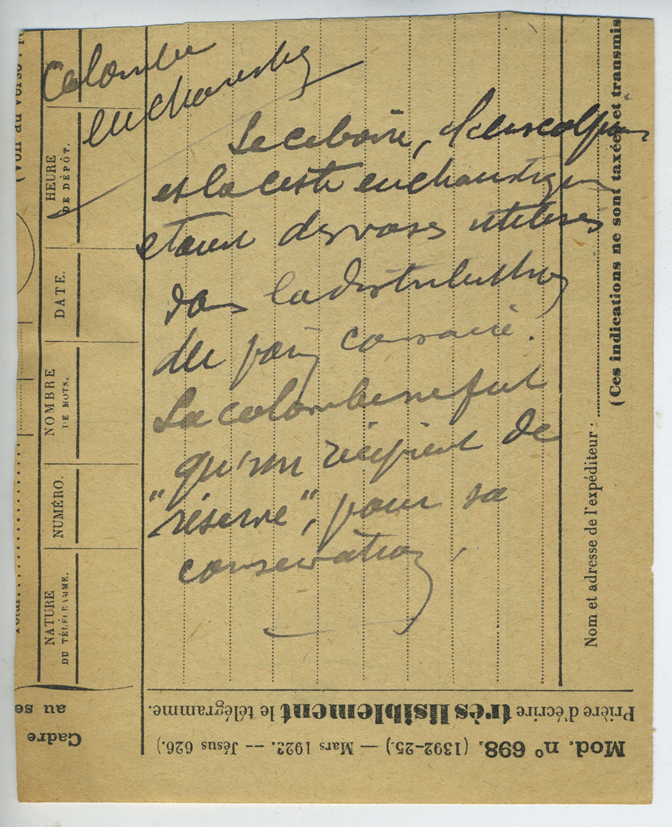 Colombe
eucharistiq
Le ciboire,
et la ciste eucharistique
étaient des vases utilisés
dans la distribution
du pain consacré.
La colombe ne fut
qu'un récipient de
"réserve", pour sa
conservation.
(Voir au verso
HEURE
DE DÉPÔT.
DATE.
NOMBRE
DE MOTS.
NUMÉRO.
NATURE
DU TÉLÉGRAMME.
Nom et adresse de l'expéditeur :
(Ces indications ne sont taxées et transmis
Prière d'écrire très lisiblement le télégramme.
Mod. n° 698. (1392-25.) — Mars 1922. -- Jésus 626.)
Cadre
au se